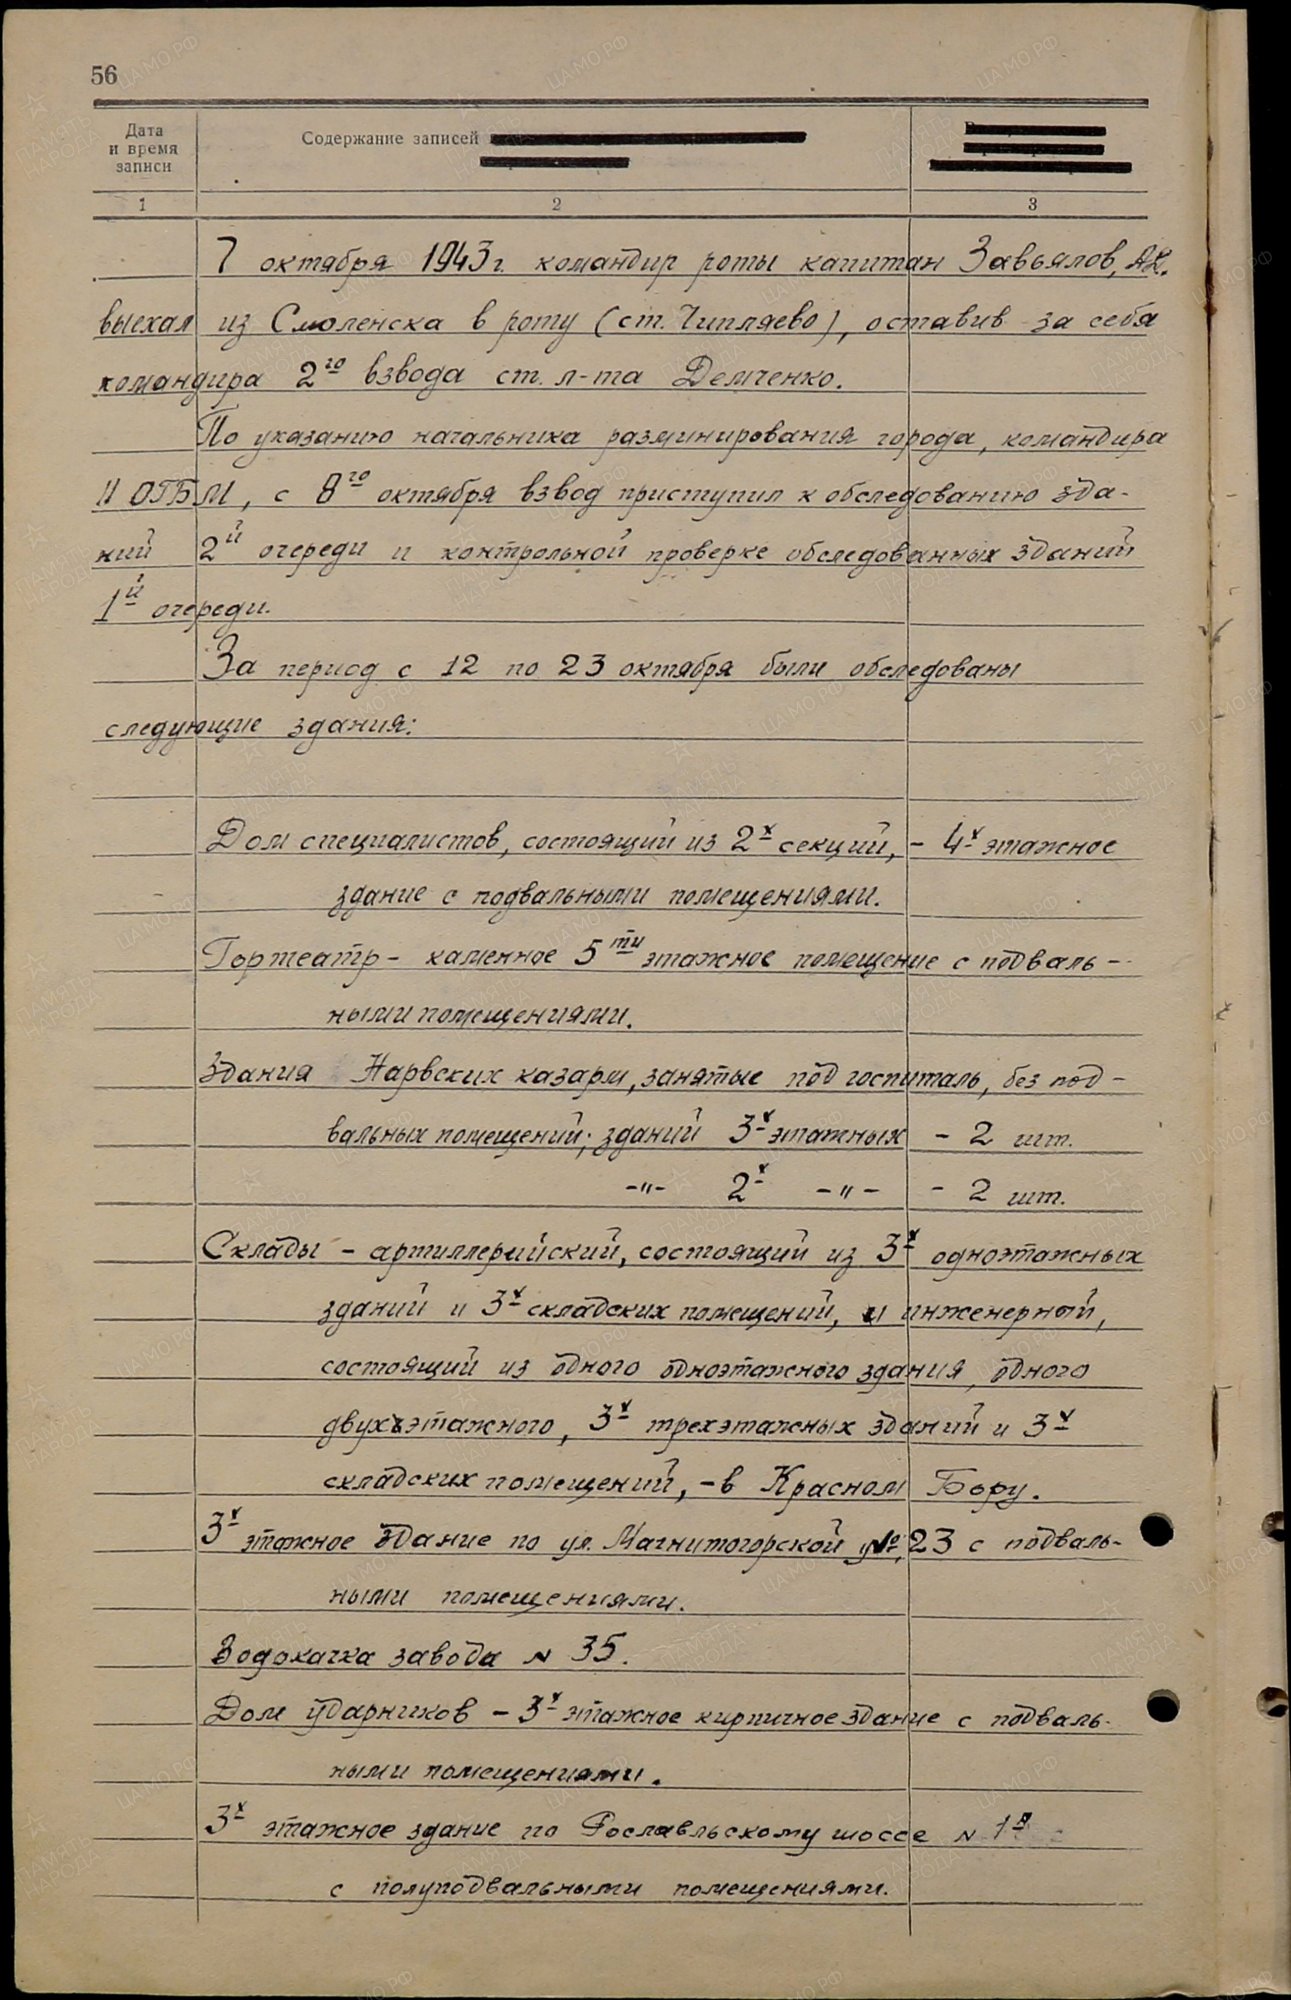 56
Дата и время записи
Содержание записей
1 2 3
7 октября 1943 г. командир роты капитан Завьялов,
выехал из Смоленска в роту (ст. Чипляево), оставив за себя
командира 2го взвода ст. л-та Демченко.
По указанию начальника разминирования города, командира
II ОГБМ, с 8го октября взвод приступил к обследованию зда-
ний 2й очереди и контрольной проверке обследованных зданий
1й очереди.
За период с 12 по 23 октября были обследованы
следующие здания:
Дом специалистов, состоящий из 2х секций, - 4х этажное
здание с подвальными помещениями.
Гортеатр - каменное 5ти этажное помещение с подваль-
ными помещениями.
Здания Нарвских казарм, занятые под госпиталь, без под-
вальных помещений; зданий 3х этажных - 2 шт.
-"- 2х -"- - 2 шт.
Склады - артиллерийский, состоящий из 3х одноэтажных
зданий и 3х складских помещений, и инженерный,
состоящий из одного одноэтажного здания, одного
двухъэтажного, 3х трехэтажных зданий и 3х
складских помещений, - в Красном Бору.
3х этажное здание по ул. Магнитогорской № 23 с подваль-
ными помещениями.
Водокачка завода № 35.
Дом ударников - 3х этажное кирпичное здание с подваль-
ными помещениями.
3х этажное здание по Рославльскому шоссе №
с полуподвальными помещениями.